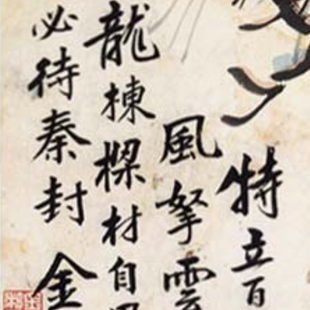 特立百
風拏雲
龍棟樑材自
必待秦封金